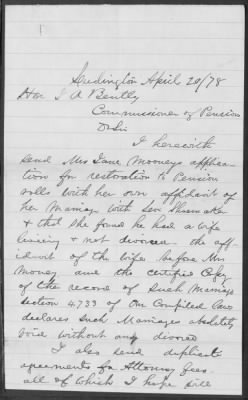 Ludington April 20/78
Hon J A Bently
Commissioner of Pensions
I herewith
send Mrs Jane Mooneys applica
tion for restoration to Pension
rolls with her own affidavit of
her Marriage with Leo Shumaker
& that she found he had a wife
living & not divorced the aff
idavit of the wife before Mrs
Mooney and the certified Copy
of the record of such Marriage
Section 4733 of Our Compiled laws
declares such Marriages absolutely
void without any divorce
I also send duplicate
agreements for Attorney fees
all of which I hope will